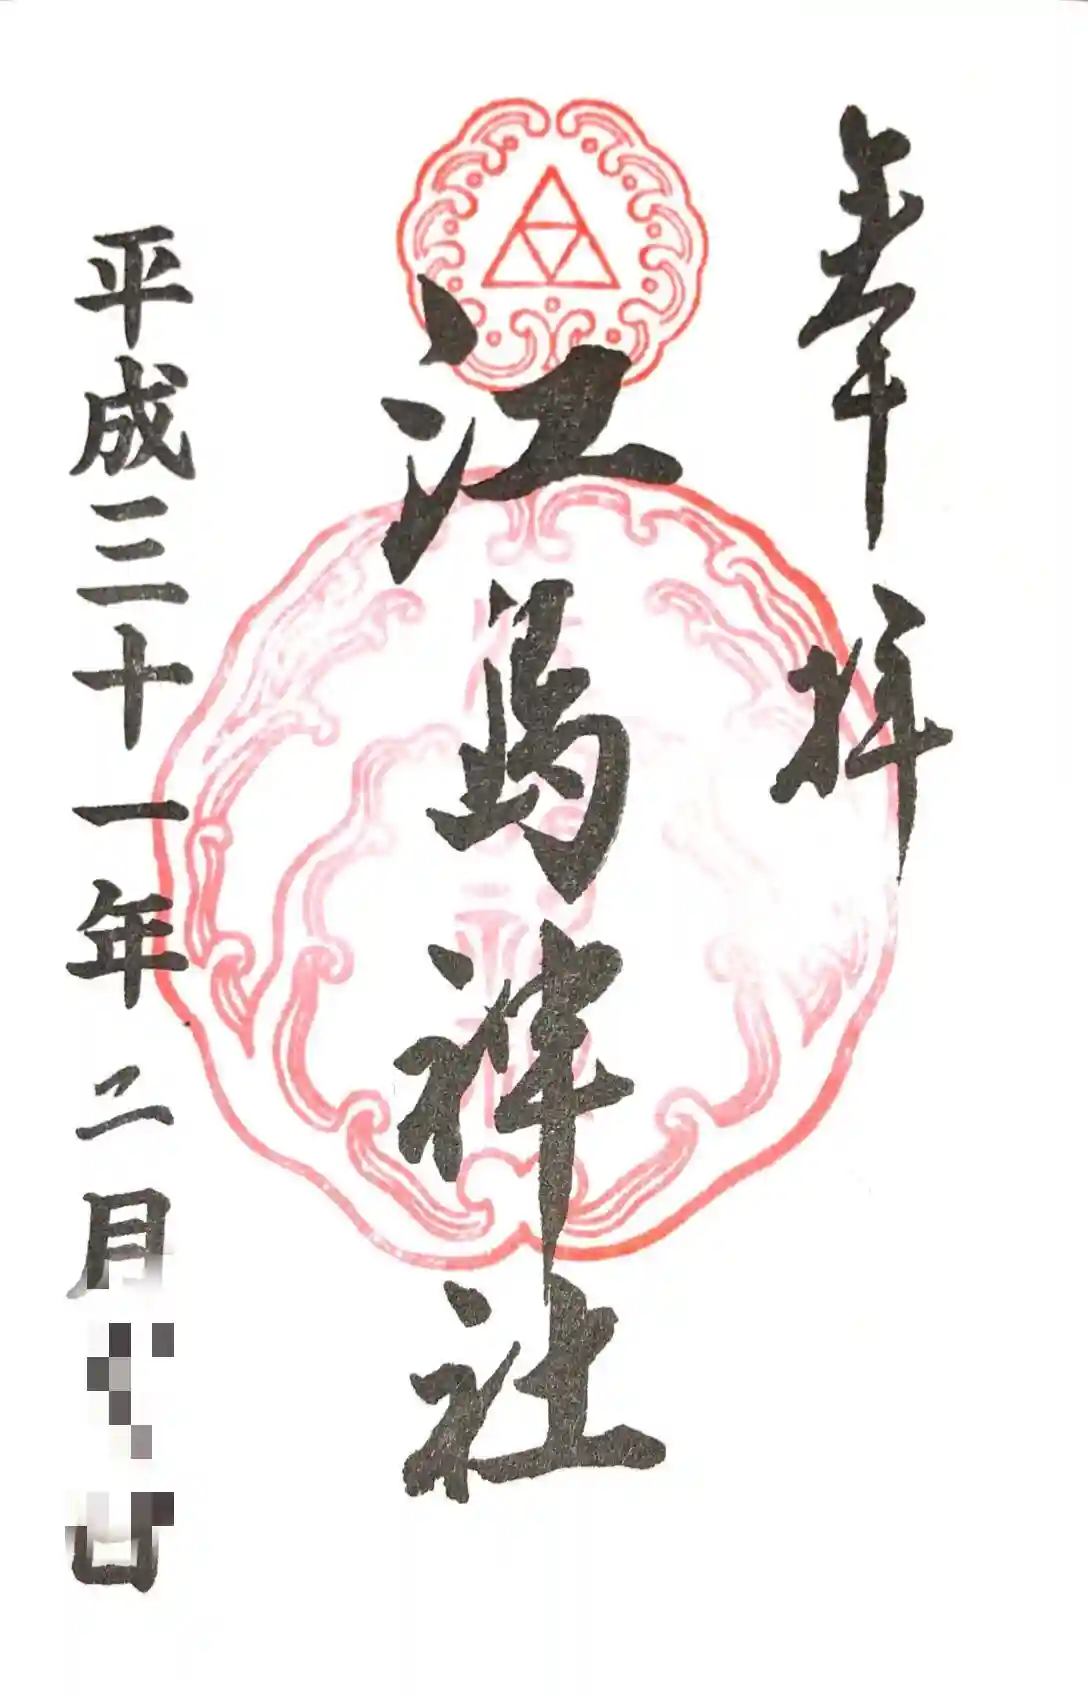 奉拝
江島神社
平成三十一年二月
日